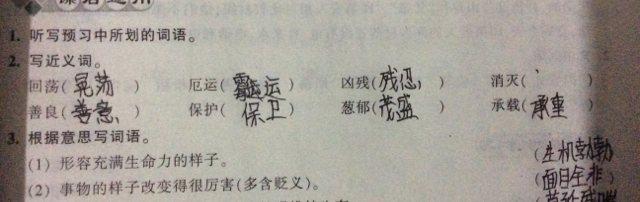 1. 听写预习中所划的词语。
2. 写近义词。
回荡(晃荡) 厄运(霉运) 凶残(残忍) 消灭( )
善良(善意) 保护(保卫) 葱郁(茂盛) 承载(承重)
3. 根据意思写词语。
(1) 形容充满生命力的样子。 (生机勃勃)
(2) 事物的样子改变得很厉害(多含贬义)。 (面目全非)